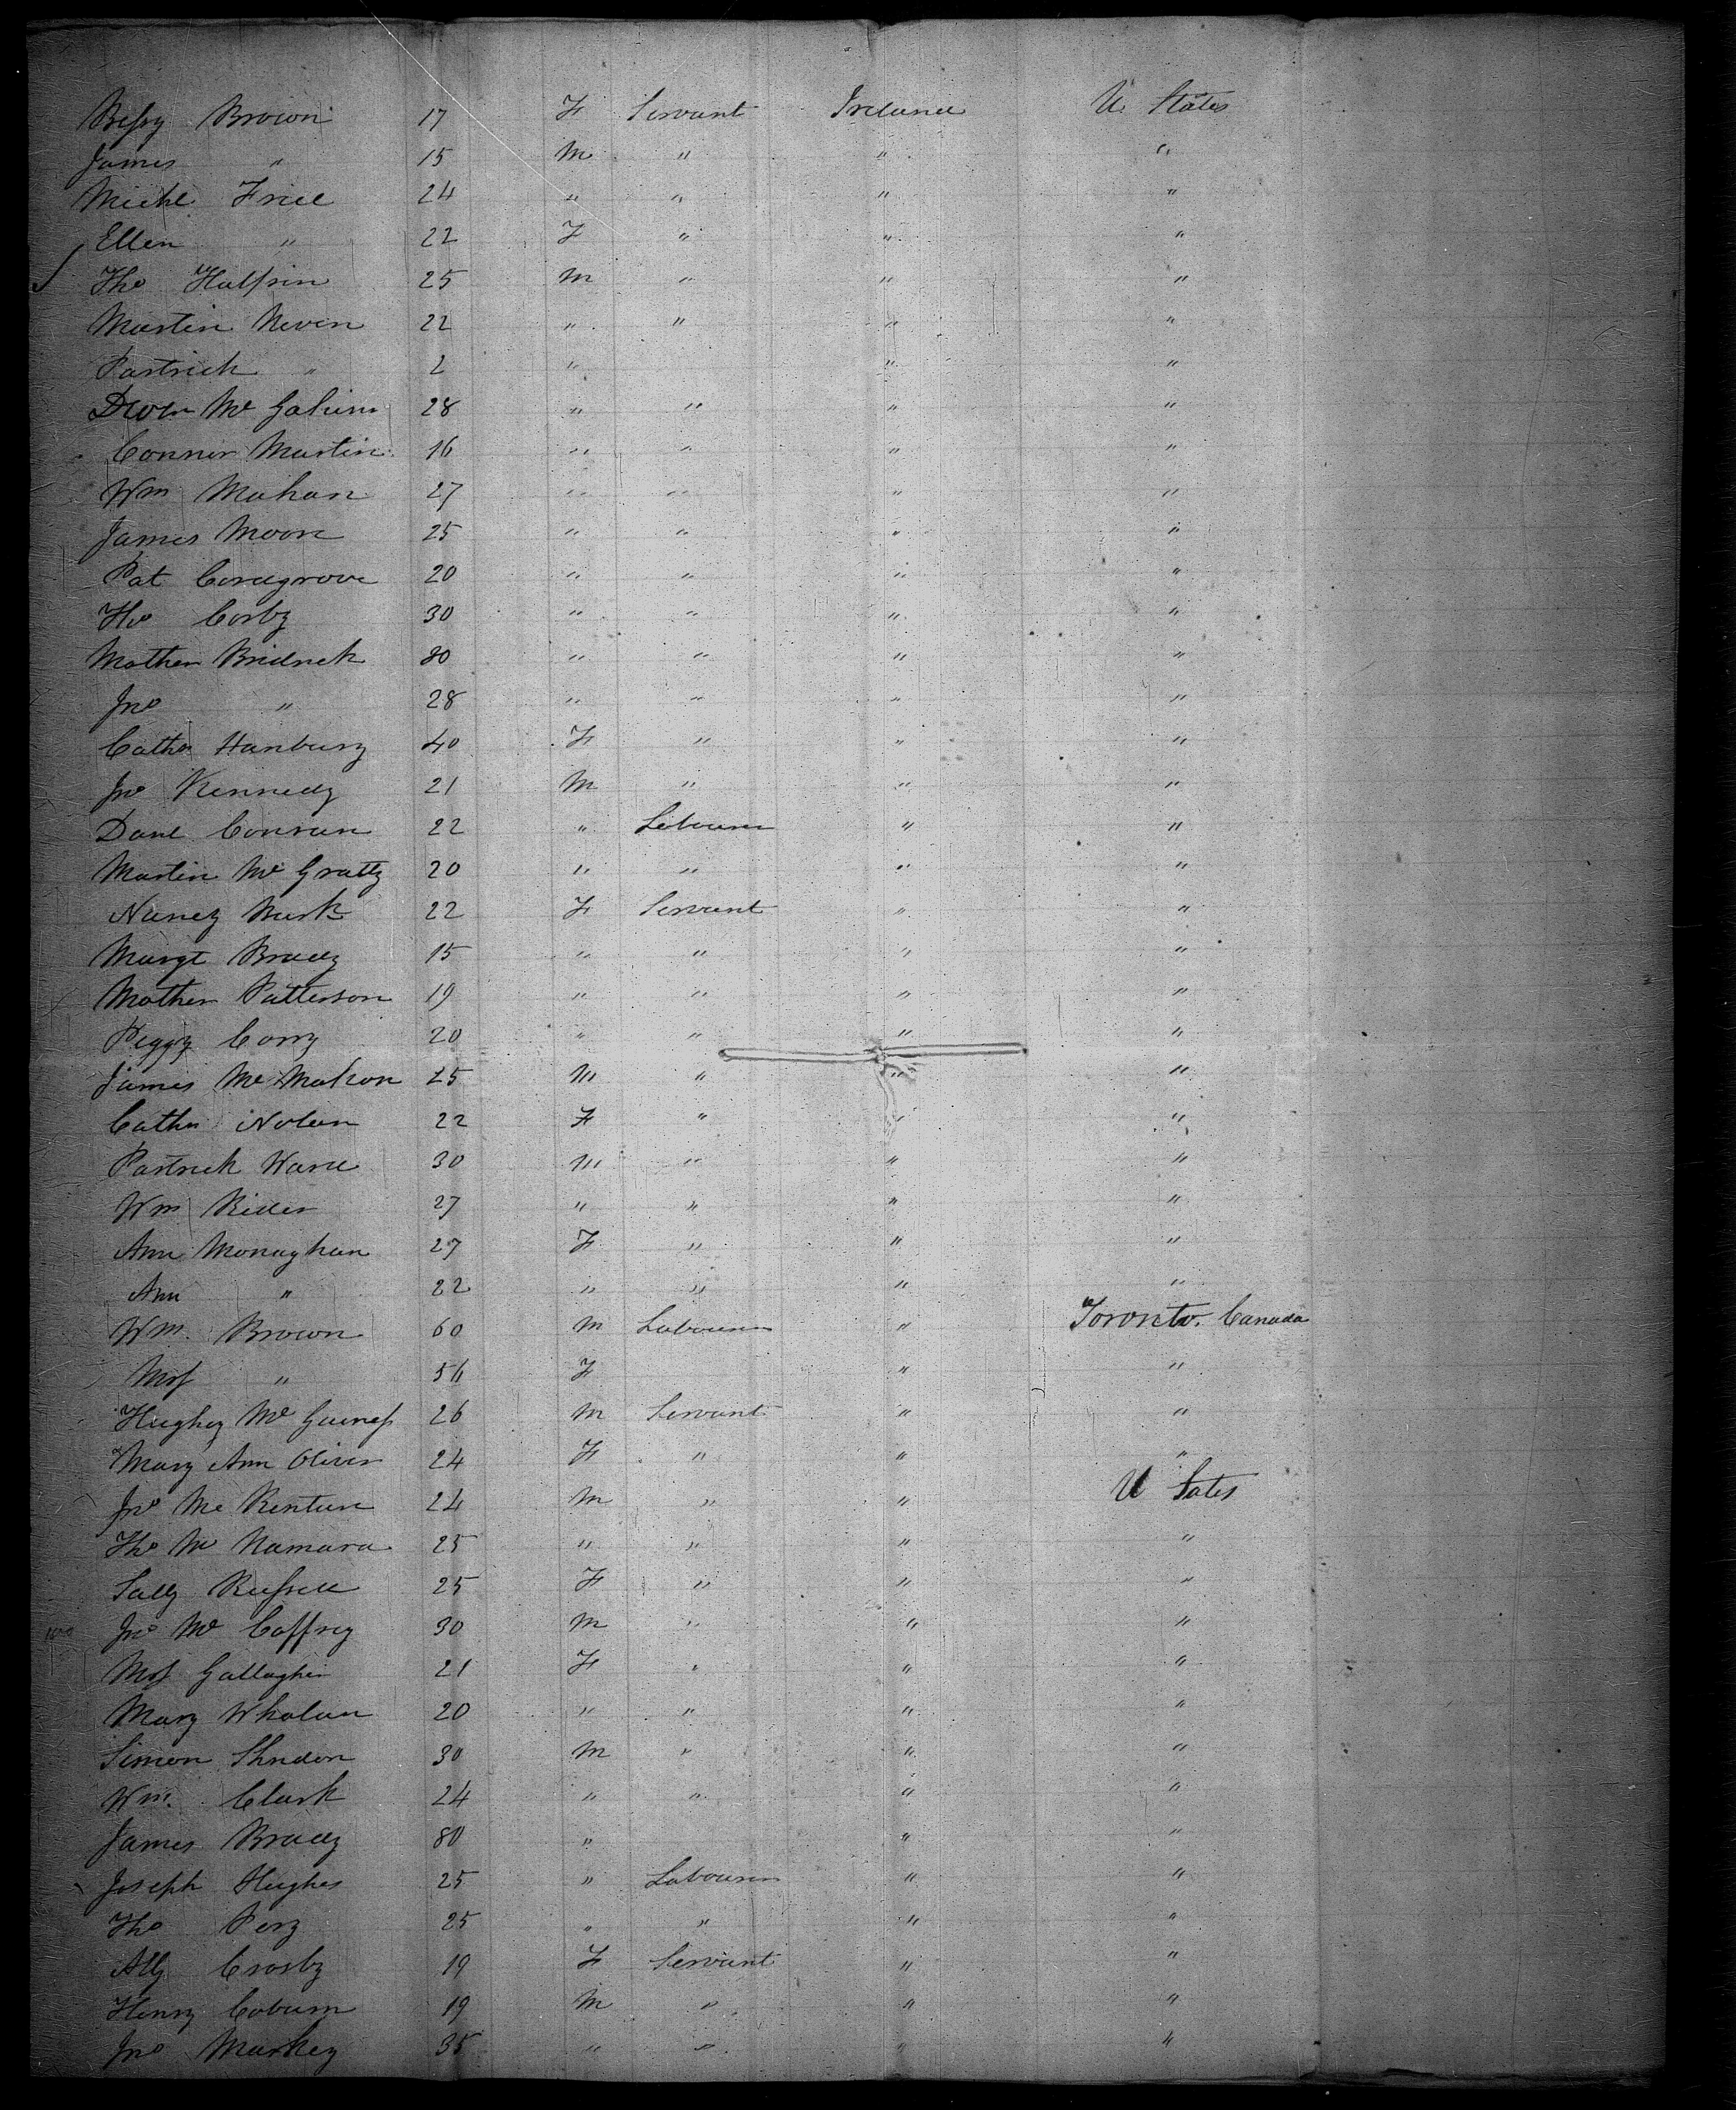 Bessy Brown 17 F Servant Ireland U. States
James " 15 M " " "
Michl Friel 24 " " " "
Ellen " 22 F " " "
Tho Halpin 25 M " " "
Martin Neven 22 " " " "
Pastrick " 2 " " "
Owen Mc Gahim 28 " " " "
Conner Martin 16 " " " "
Wm Mahan 27 " " " "
James Moore 25 " " " "
Pat Coregrove 20 " " " "
Tho Corby 30 " " " "
Mathew Bridnek 30 " " " "
Jno " 28 " " " "
Cathn Hanbury 40 F " " "
Jno Kennedy 21 M " " "
Danl Conran 22 " Labourer " "
Martin Mc Gratty 20 " " " "
Nancy Burk 22 F Servant " "
Margt Brady 15 " " " "
Mather Patterson 19 " " " "
Peggy Corry 20 " " " "
James Mc Mahon 25 M " " "
Cathn Nolan 22 F " " "
Pastrick Ward 30 M " " "
Wm Rider 27 " " " "
Ann Monaghan 27 F " " "
Ann " 22 " " " "
Wm. Brown 60 M Labourer " Toronto. Canada
Mrs " 56 F " "
Hughey Mc Guiness 26 M Servant " "
Mary Ann Oliver 24 F " " "
Jno Mc Kentun 24 M " " U Sates
Tho Mc Namara 25 " " " "
Sally Russell 25 F " " "
Jno Mc Caffrey 30 M " " "
Mrs Gallagher 21 F " " "
Mary Whalan 20 " " " "
Simon Shndon 30 M " " "
Wm. Clark 24 " " " "
James Brady 80 " " "
Joseph Hughes 25 " Labourer " "
Tho Perry 25 " " " "
Ally Crosby 19 F Servant " "
Henry Coburn 19 M " " "
Jno Markey 35 " " " "